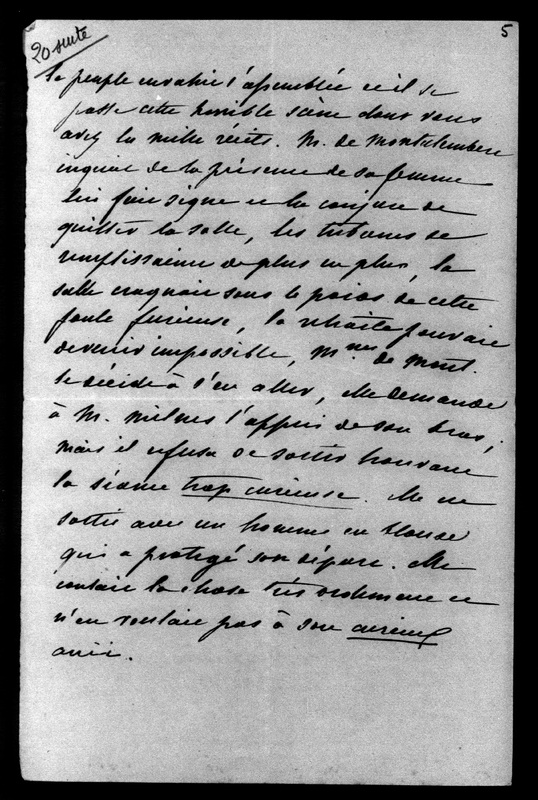 20 suite
5
le peuple envahit l'assemblée et il se
passe cette horrible scène dont vous
avez lu mille récits. M. de Montalembert
inquiet de la présence de sa femme
lui fait signe et la conjure de
quitter la salle, les tribunes se
remplissaient de plus en plus, la
salle craquait sous le poids de cette
foule furieuse, la retraite pouvait
devenir impossible, Mme de Mont.
se décide à s'en aller, elle demande
à M. Milnes l'appui de son bras,
mais il refusa de sortir trouvant
la séance trop curieuse. Elle est
sortie avec un homme en blouse
qui a protégé son départ. Elle
contait la chose très drôlement et
n'en voulait pas à son curieux
ami.